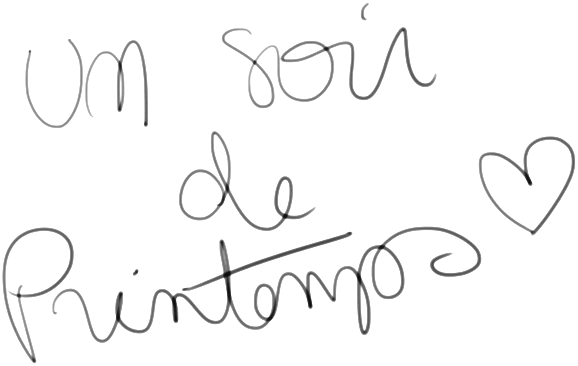 un soir
de
Printemps